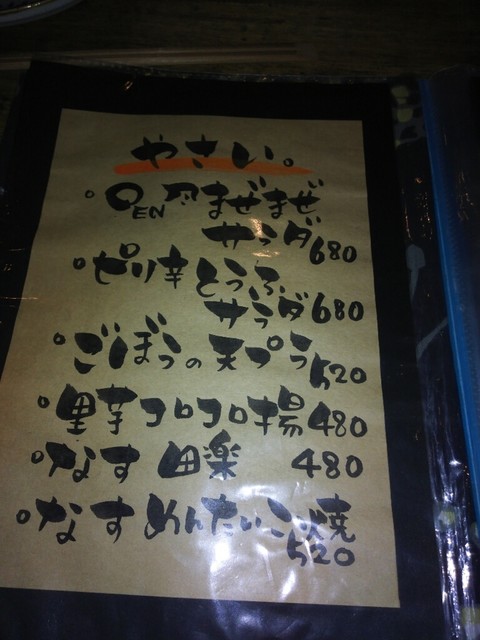 やさい。
。OEN風まぜまぜ
サラダ680
。ピリ辛とうふ
サラダ680
。ごぼうの天プラ520
。里芋コロコロ揚480
。なす田楽 480
。なすめんたいこ焼
520